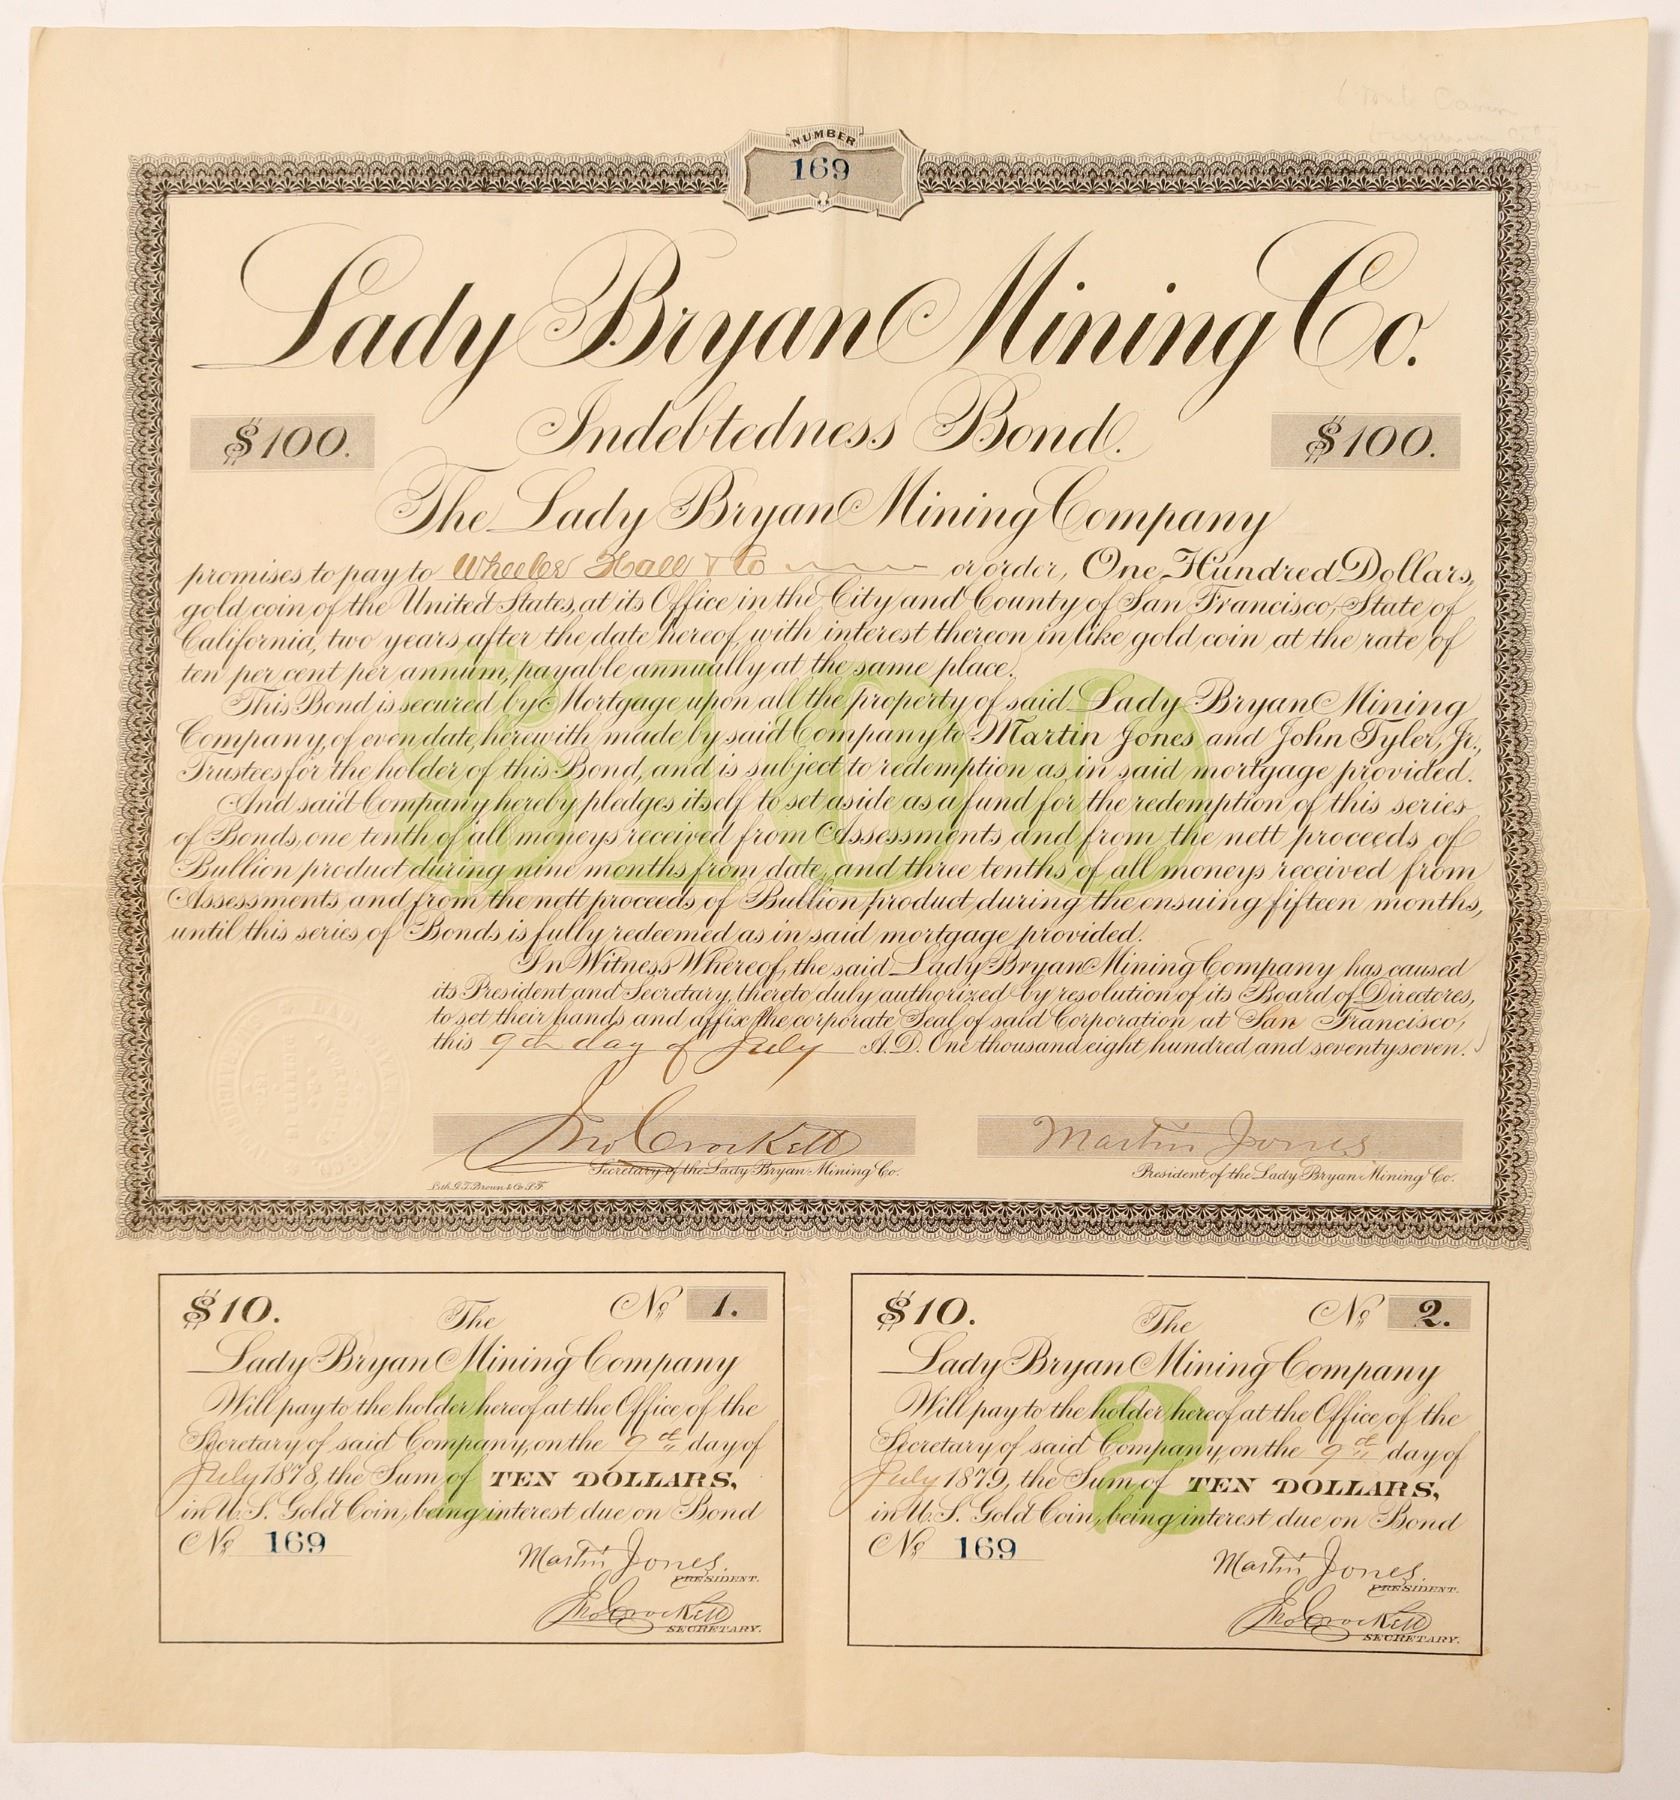 NUMBER
169
Lady Bryan Mining Co.
$100.
Indebtedness Bond.
$100.
The Lady Bryan Mining Company
promises to pay to Wheeler Hall & Co or order, One Hundred Dollars,
gold coin of the United States, at its Office in the City and County of San Francisco, State of
California, two years after the date hereof, with interest thereon in like gold coin at the rate of
ten per cent per annum, payable annually at the same place.
This Bond is secured by Mortgage upon all the property of said Lady Bryan Mining
Company, of even date, herewith made by said Company to Martin Jones and John Tyler, Jr.,
Trustees for the holder of this Bond, and is subject to redemption as in said mortgage provided.
And said Company hereby pledges itself to set aside as a fund for the redemption of this series
of Bonds, one tenth of all moneys received from Assessments and from the nett proceeds of
Bullion product during nine months from date, and three tenths of all moneys received from
Assessments and from the nett proceeds of Bullion product during the ensuing fifteen months,
until this series of Bonds is fully redeemed as in said mortgage provided.
In Witness Whereof, the said Lady Bryan Mining Company has caused
its President and Secretary, thereto duly authorized by resolution of its Board of Directores,
to set their hands and affix the corporate Seal of said Corporation at San Francisco,
this 9th day of July A.D. One thousand eight hundred and seventy seven.
$100
Jno Crockett
Martin Jones
Secretary of the Lady Bryan Mining Co.
President of the Lady Bryan Mining Co.
Lith. G.T. Brown & Co. S.F.
$10. The No. 1.
Lady Bryan Mining Company
Will pay to the holder hereof at the Office of the
Secretary of said Company, on the 9th day of
July 1878, the Sum of TEN DOLLARS,
in U.S. Gold Coin, being interest due on Bond
No. 169
1
Martin Jones
PRESIDENT.
Jno Crockett
SECRETARY.
$10. The No. 2.
Lady Bryan Mining Company
Will pay to the holder hereof at the Office of the
Secretary of said Company, on the 9th day of
July 1879, the Sum of TEN DOLLARS,
in U.S. Gold Coin, being interest due on Bond
No. 169
2
Martin Jones
PRESIDENT.
Jno Crockett
SECRETARY.